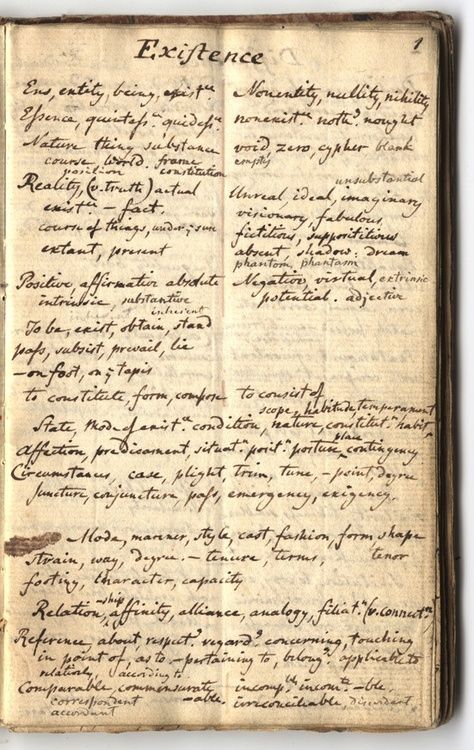 Existence 1
Ens, entity, being, exist.ce
Essence, quintess.ce quidess.ce
Nature thing substance
course, world. frame
position constitution
Reality, (v. truth) actual
exist.ce – fact.
course of things, under ye sun
extant, present
Nonentity, nullity, nihility
nonexist.ce noth.g nought
void, zero, cypher blank
empty
unsubstantial
Unreal, ideal, imaginary
visionary, fabulous,
fictitious, supposititious
absent, shadow. dream
phantom, phantasm
Positive, affirmative absolute
intrinsic, substantive
inherent
Negative, virtual, extrinsic
potential. adjective
To be, exist, obtain, stand
pass, subsist, prevail, lie
– on foot, on ye tapis
to constitute, form, compose to consist of
scope, habitude temperament
State, Mode of exist.ce condition, nature, constitut.n habit
place
Affection, predicament, situat.n posit.n posture, contingency
Circumstances, case, plight, trim, tune, – point, degree
Juncture, conjuncture, pass, emergency, exigency.
Mode, manner, style, cast, fashion, form, shape
Strain, way, degree, – tenure, terms, tenor
footing, character, capacity
Relation,-ship affinity, alliance, analogy, filiat.n (v. connect.n
Reference about, respect.g regard.g concerning, touching
in point of, as to, – pertaining to, belong.g applicable to
relatively, according to
Comparable, commensurate incomp.ble incom.te -ble,
correspondent -able, irreconcilable, discordant
accordant